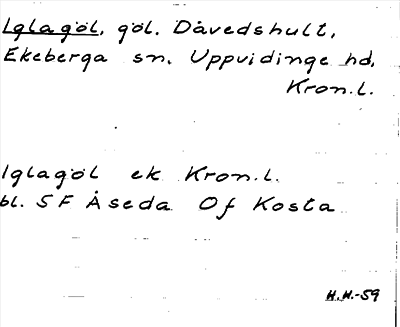 Iglagöl, göl. Dåvedshult,
Ekeberga sn. Uppvidinge hd.
Kron.l.
Iglagöl ek Kron.l.
bl. 5 F Åseda Of Kosta
H.H.-59